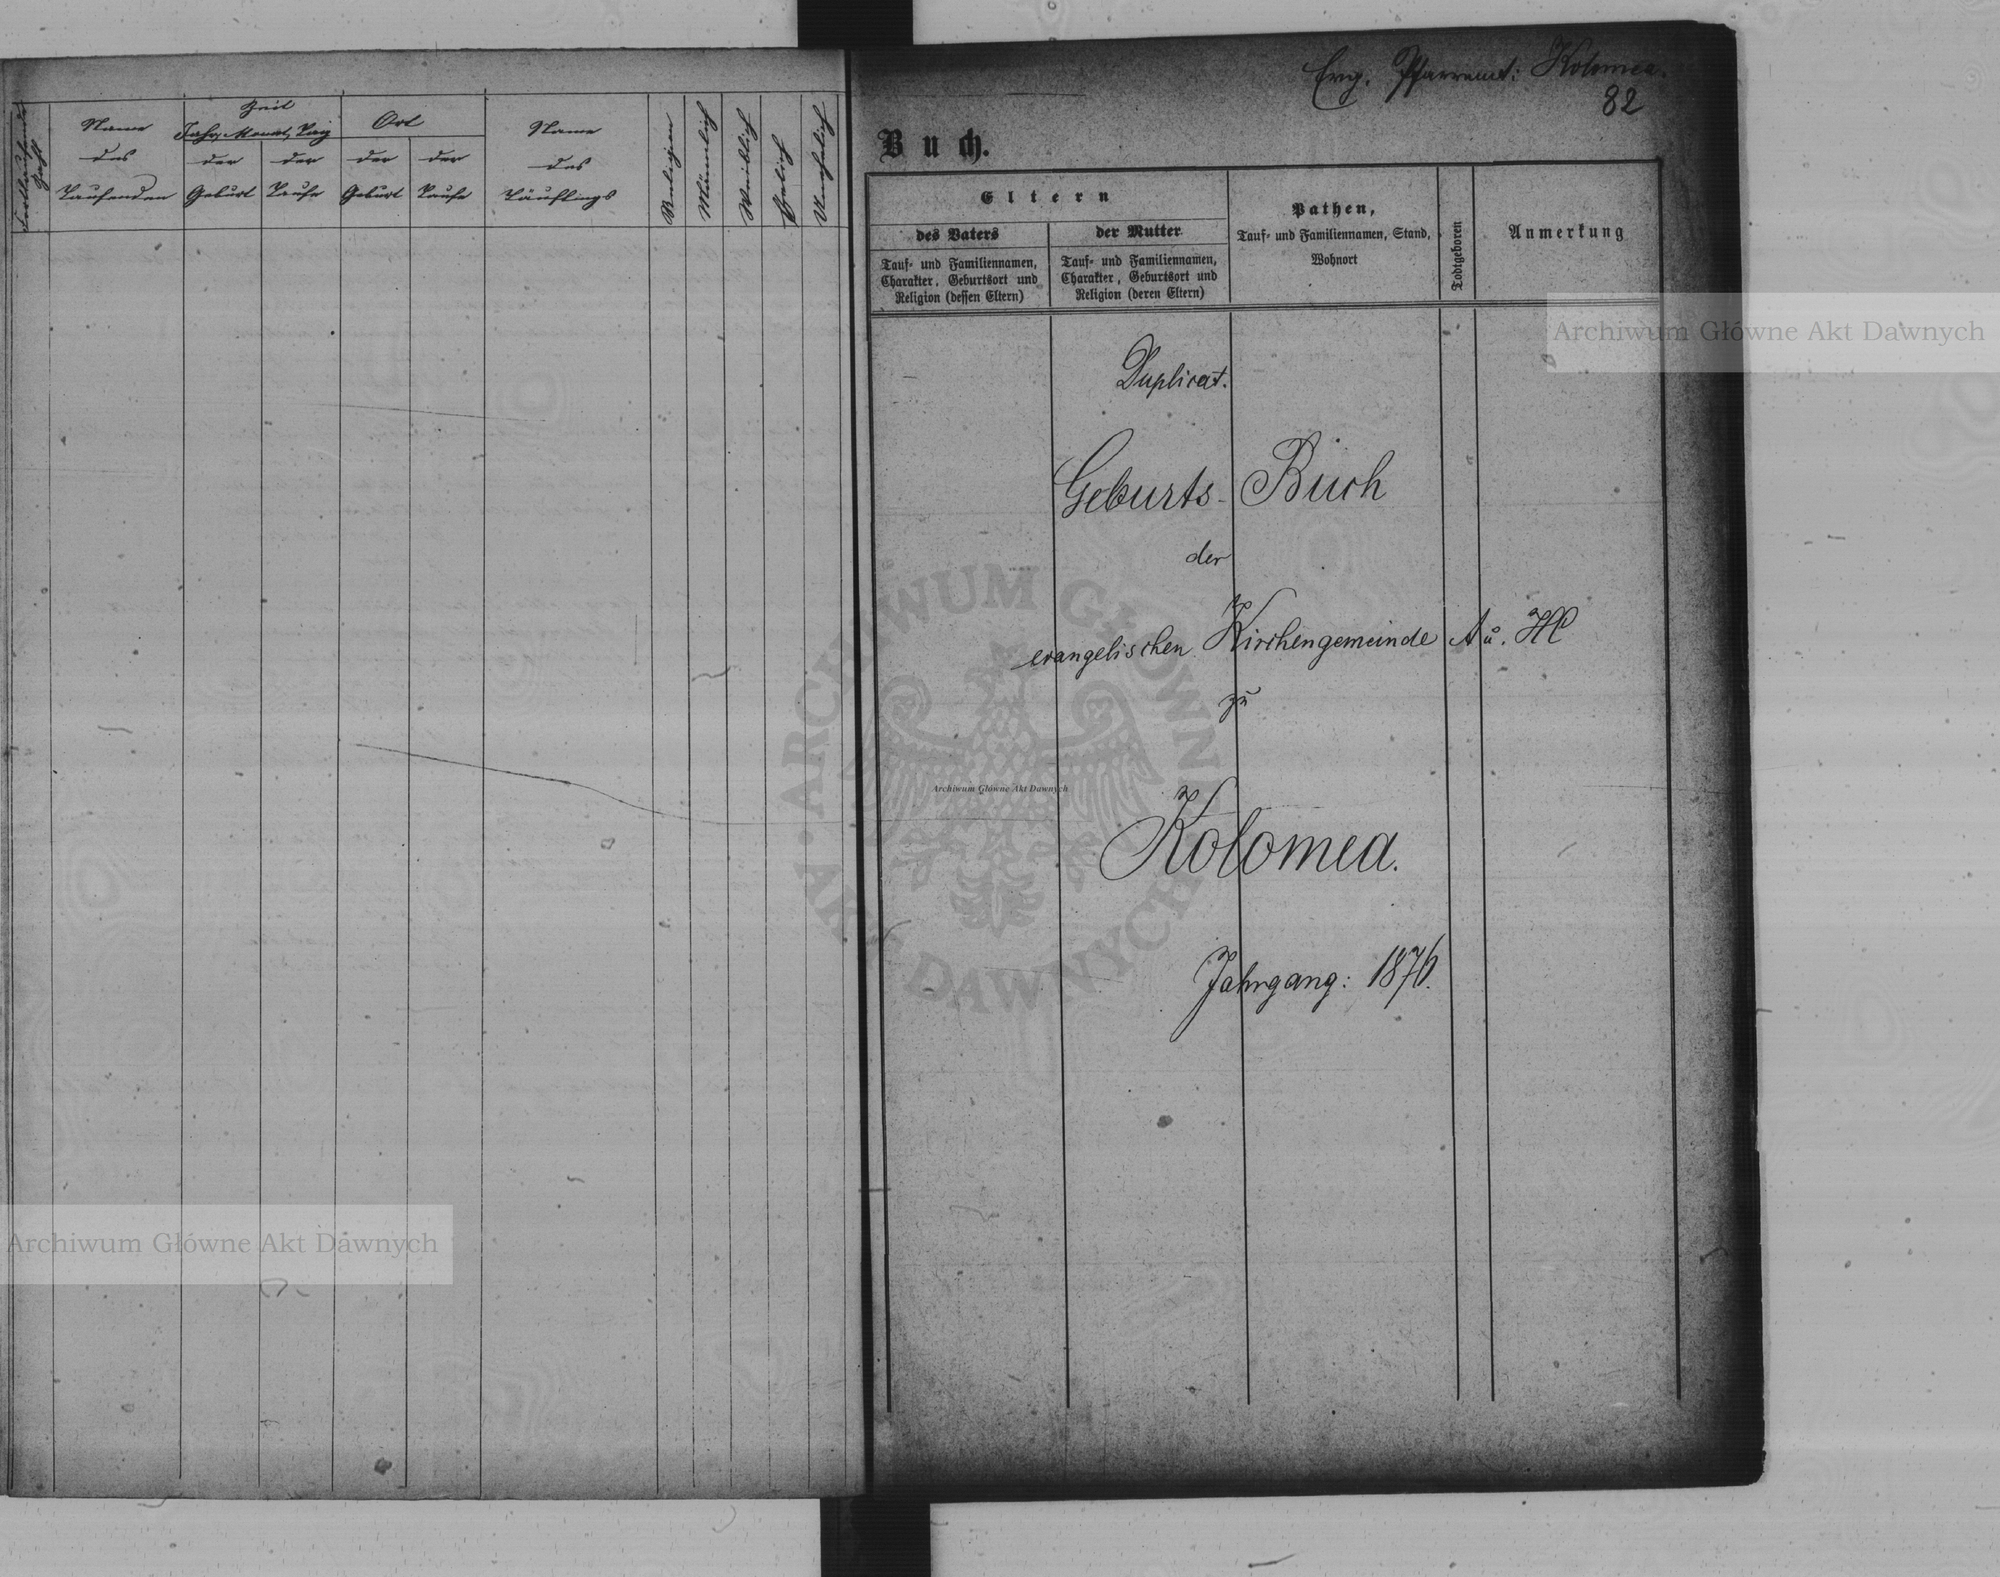 Fortlaufende Zahl
Name
des
Taufenden
Zeit
Jahr, Monat, Tag
der
Geburt
der
Taufe
Ort
der
Geburt
der
Taufe
Name
des
Täuflings
Religion
Männlich
Weiblich
Ehelich
Unehelich
Evg. Pfarramt: Kolomea.
82
Buch.
Eltern
des Vaters
Tauf- und Familiennamen,
Charakter, Geburtsort und
Religion (dessen Eltern)
der Mutter
Tauf- und Familiennamen,
Charakter, Geburtsort und
Religion (deren Eltern)
Pathen,
Tauf- und Familiennamen, Stand,
Wohnort
Todtgeboren
Anmerkung
Duplicat.
Geburts-Buch
der
evangelischen Kirchengemeinde A u. HC
zu
Kolomea.
Jahrgang: 1876.
Archiwum Główne Akt Dawnych
Archiwum Główne Akt Dawnych
Archiwum Główne Akt Dawnych
ARCHIWUM GŁÓWNE AKT DAWNYCH